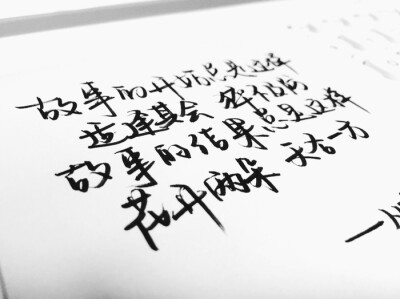 故事的开始总是这样
适逢其会 猝不及防
故事的结果总是这样
花开两朵 天各一方
一